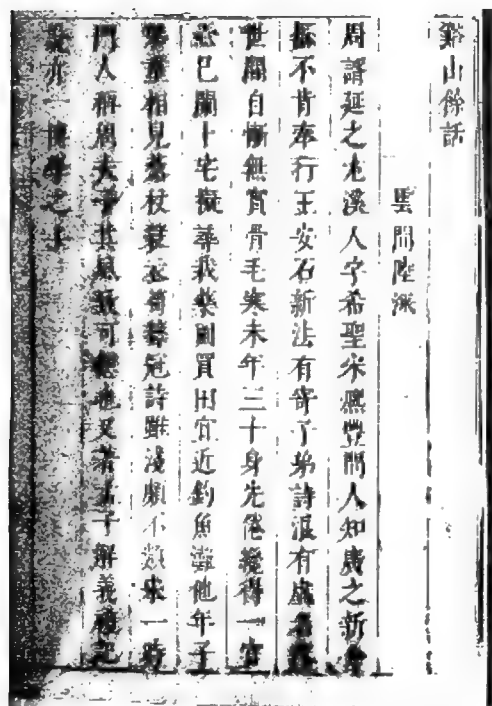 谿山餘話
雲間陸深
周諝延之尤溪人字希聖宋熈豐間人知廣之新會
縣不肯奉行王安石新法有寄子弟詩浪有虛名落
世間自慚無實骨毛寒未年三十身先倦纔得一官
已闌卜宅擬尋栽藥圃買田宜近釣魚灘他年子
重相見藜杖衣荷籜冠詩雖淺頗不類宋一時
門人稱周夫子其風致可想也又著孟子解義禮記
說亦一博學之士